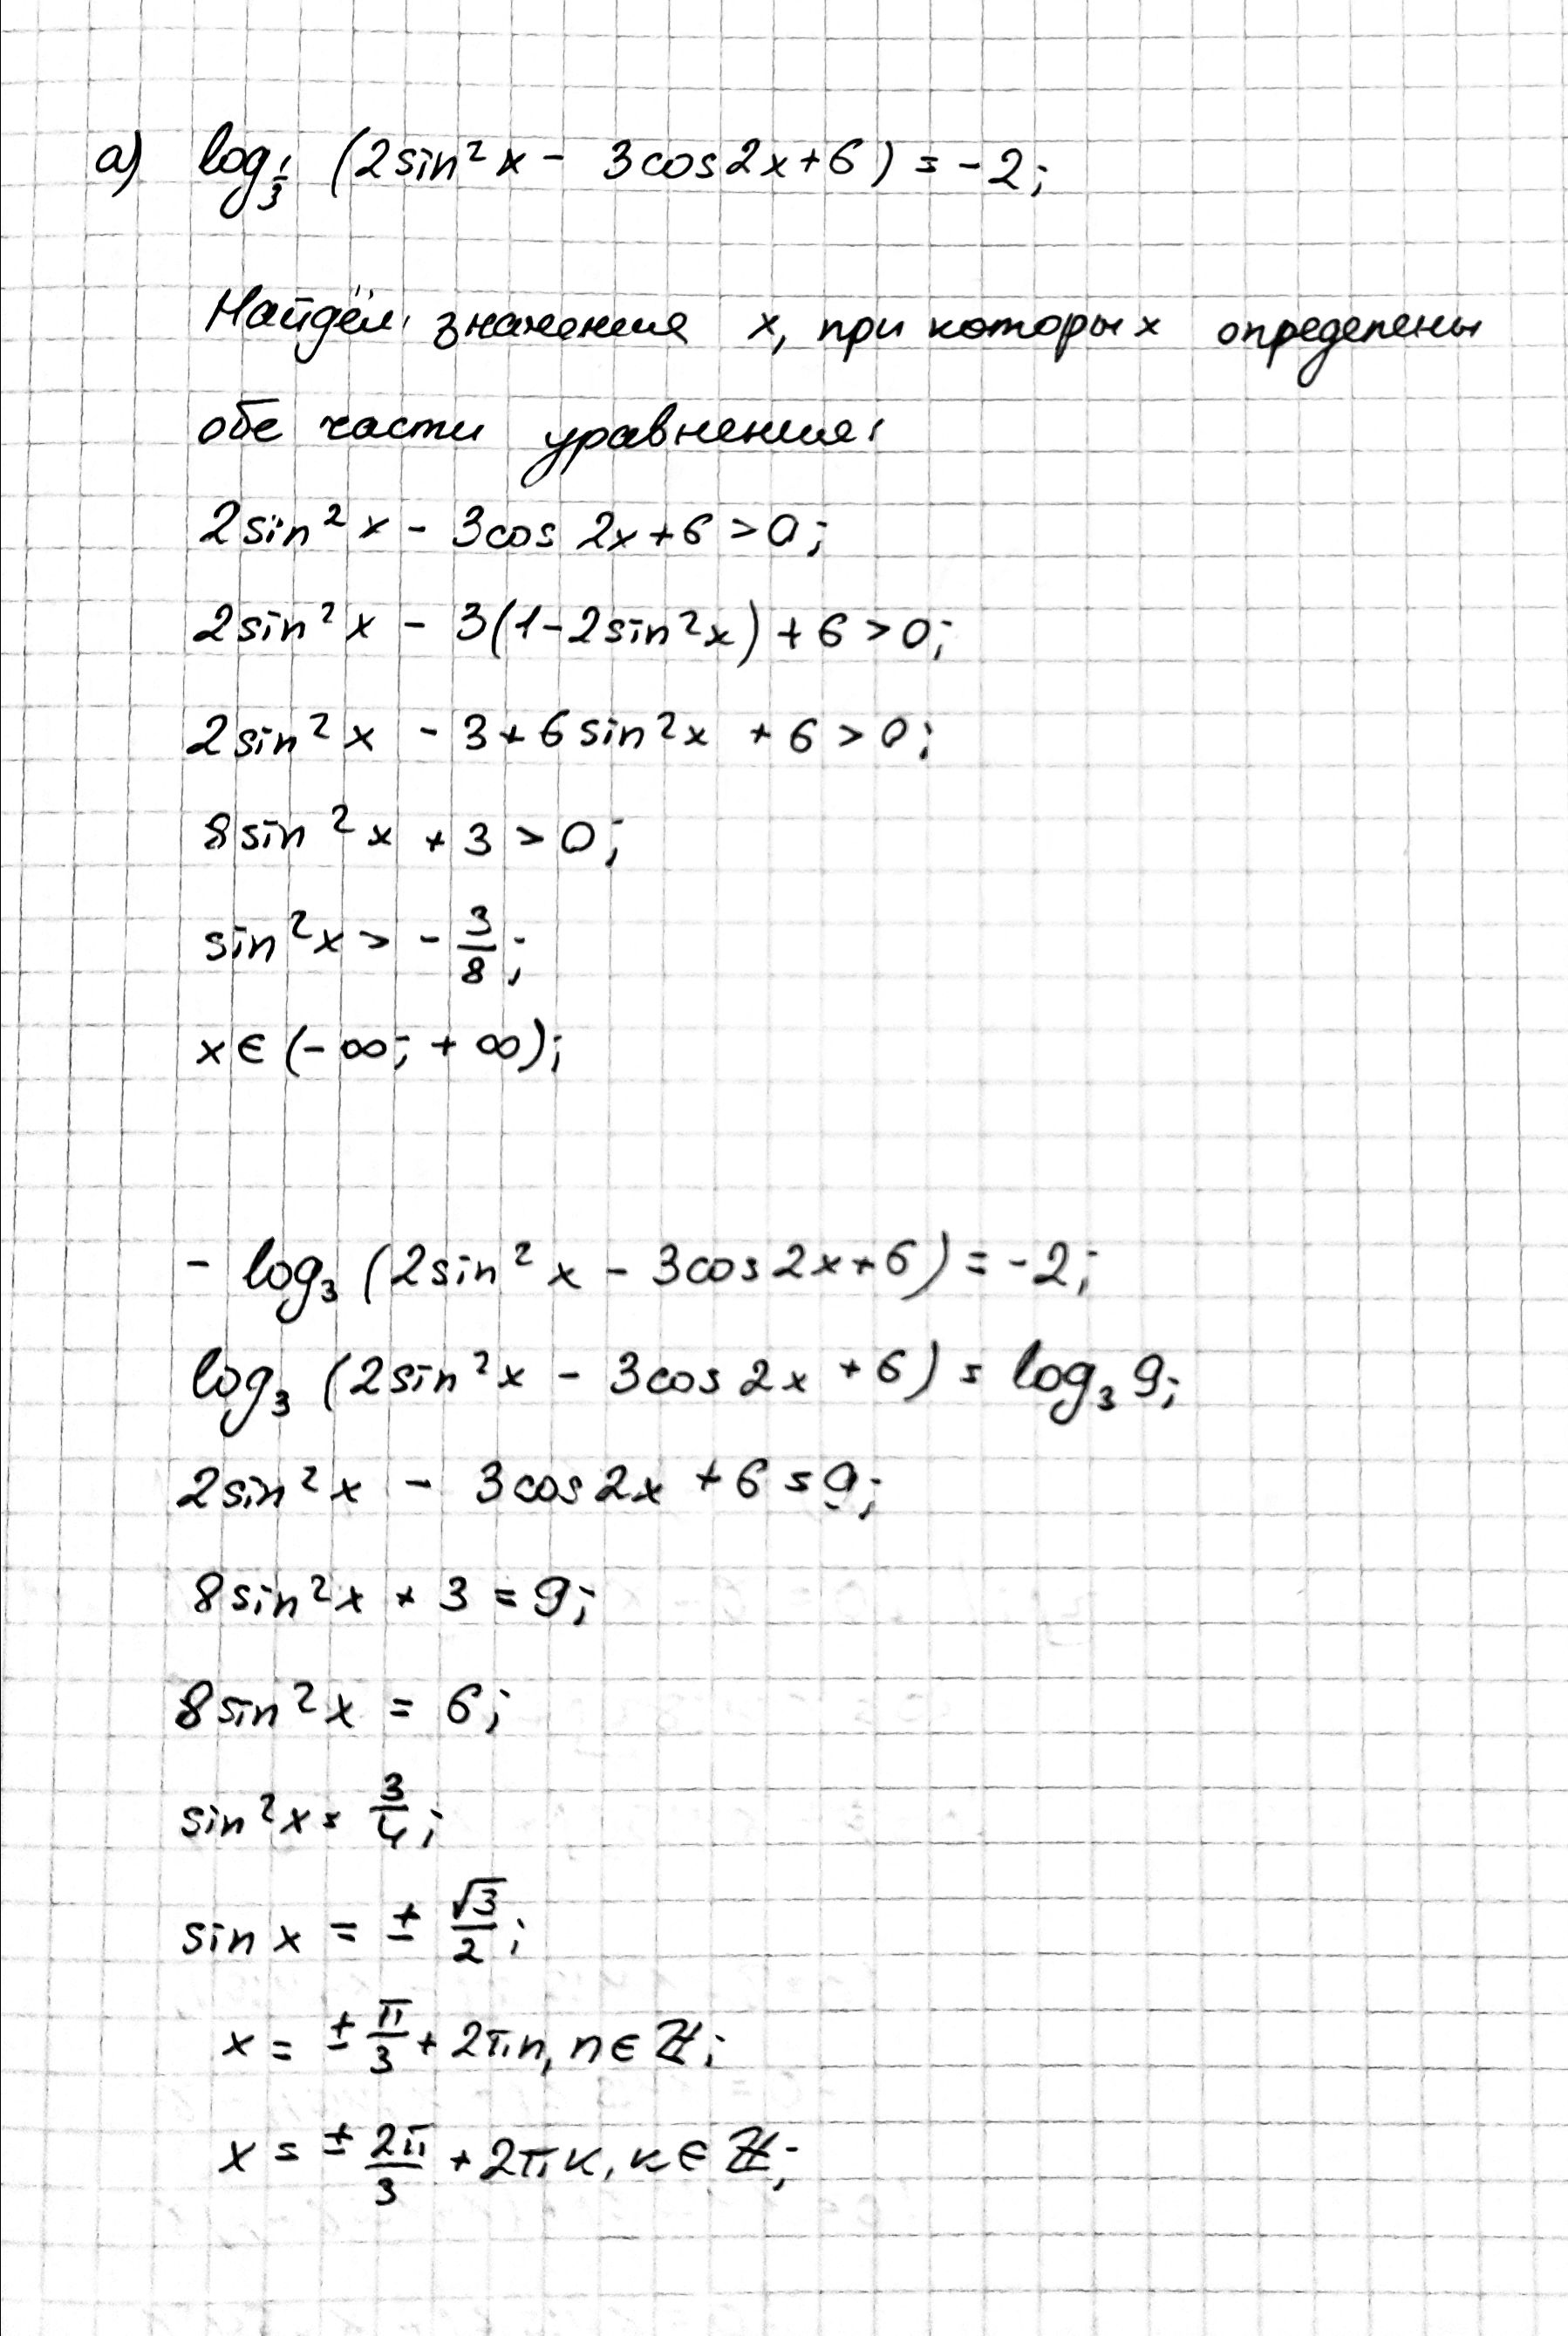 а) log_{1/3} (2sin²x - 3cos2x+6) = -2;
Найдём значения x, при которых определены
обе части уравнения:
2sin²x - 3cos 2x+6 > 0;
2sin²x - 3(1-2sin²x) + 6 > 0;
2sin²x - 3+6sin²x + 6 > 0;
8sin²x + 3 > 0;
sin²x > - 3/8;
x ∈ (-∞; +∞);
- log₃ (2sin²x - 3cos2x+6) = -2;
log₃ (2sin²x - 3cos2x + 6) = log₃ 9;
2sin²x - 3cos2x + 6 = 9;
8sin²x + 3 = 9;
8sin²x = 6;
sin²x = 3/4;
sin x = ± √3/2;
x = ± π/3 + 2πn, n ∈ ℤ;
x = ± 2π/3 + 2πк, к ∈ ℤ;